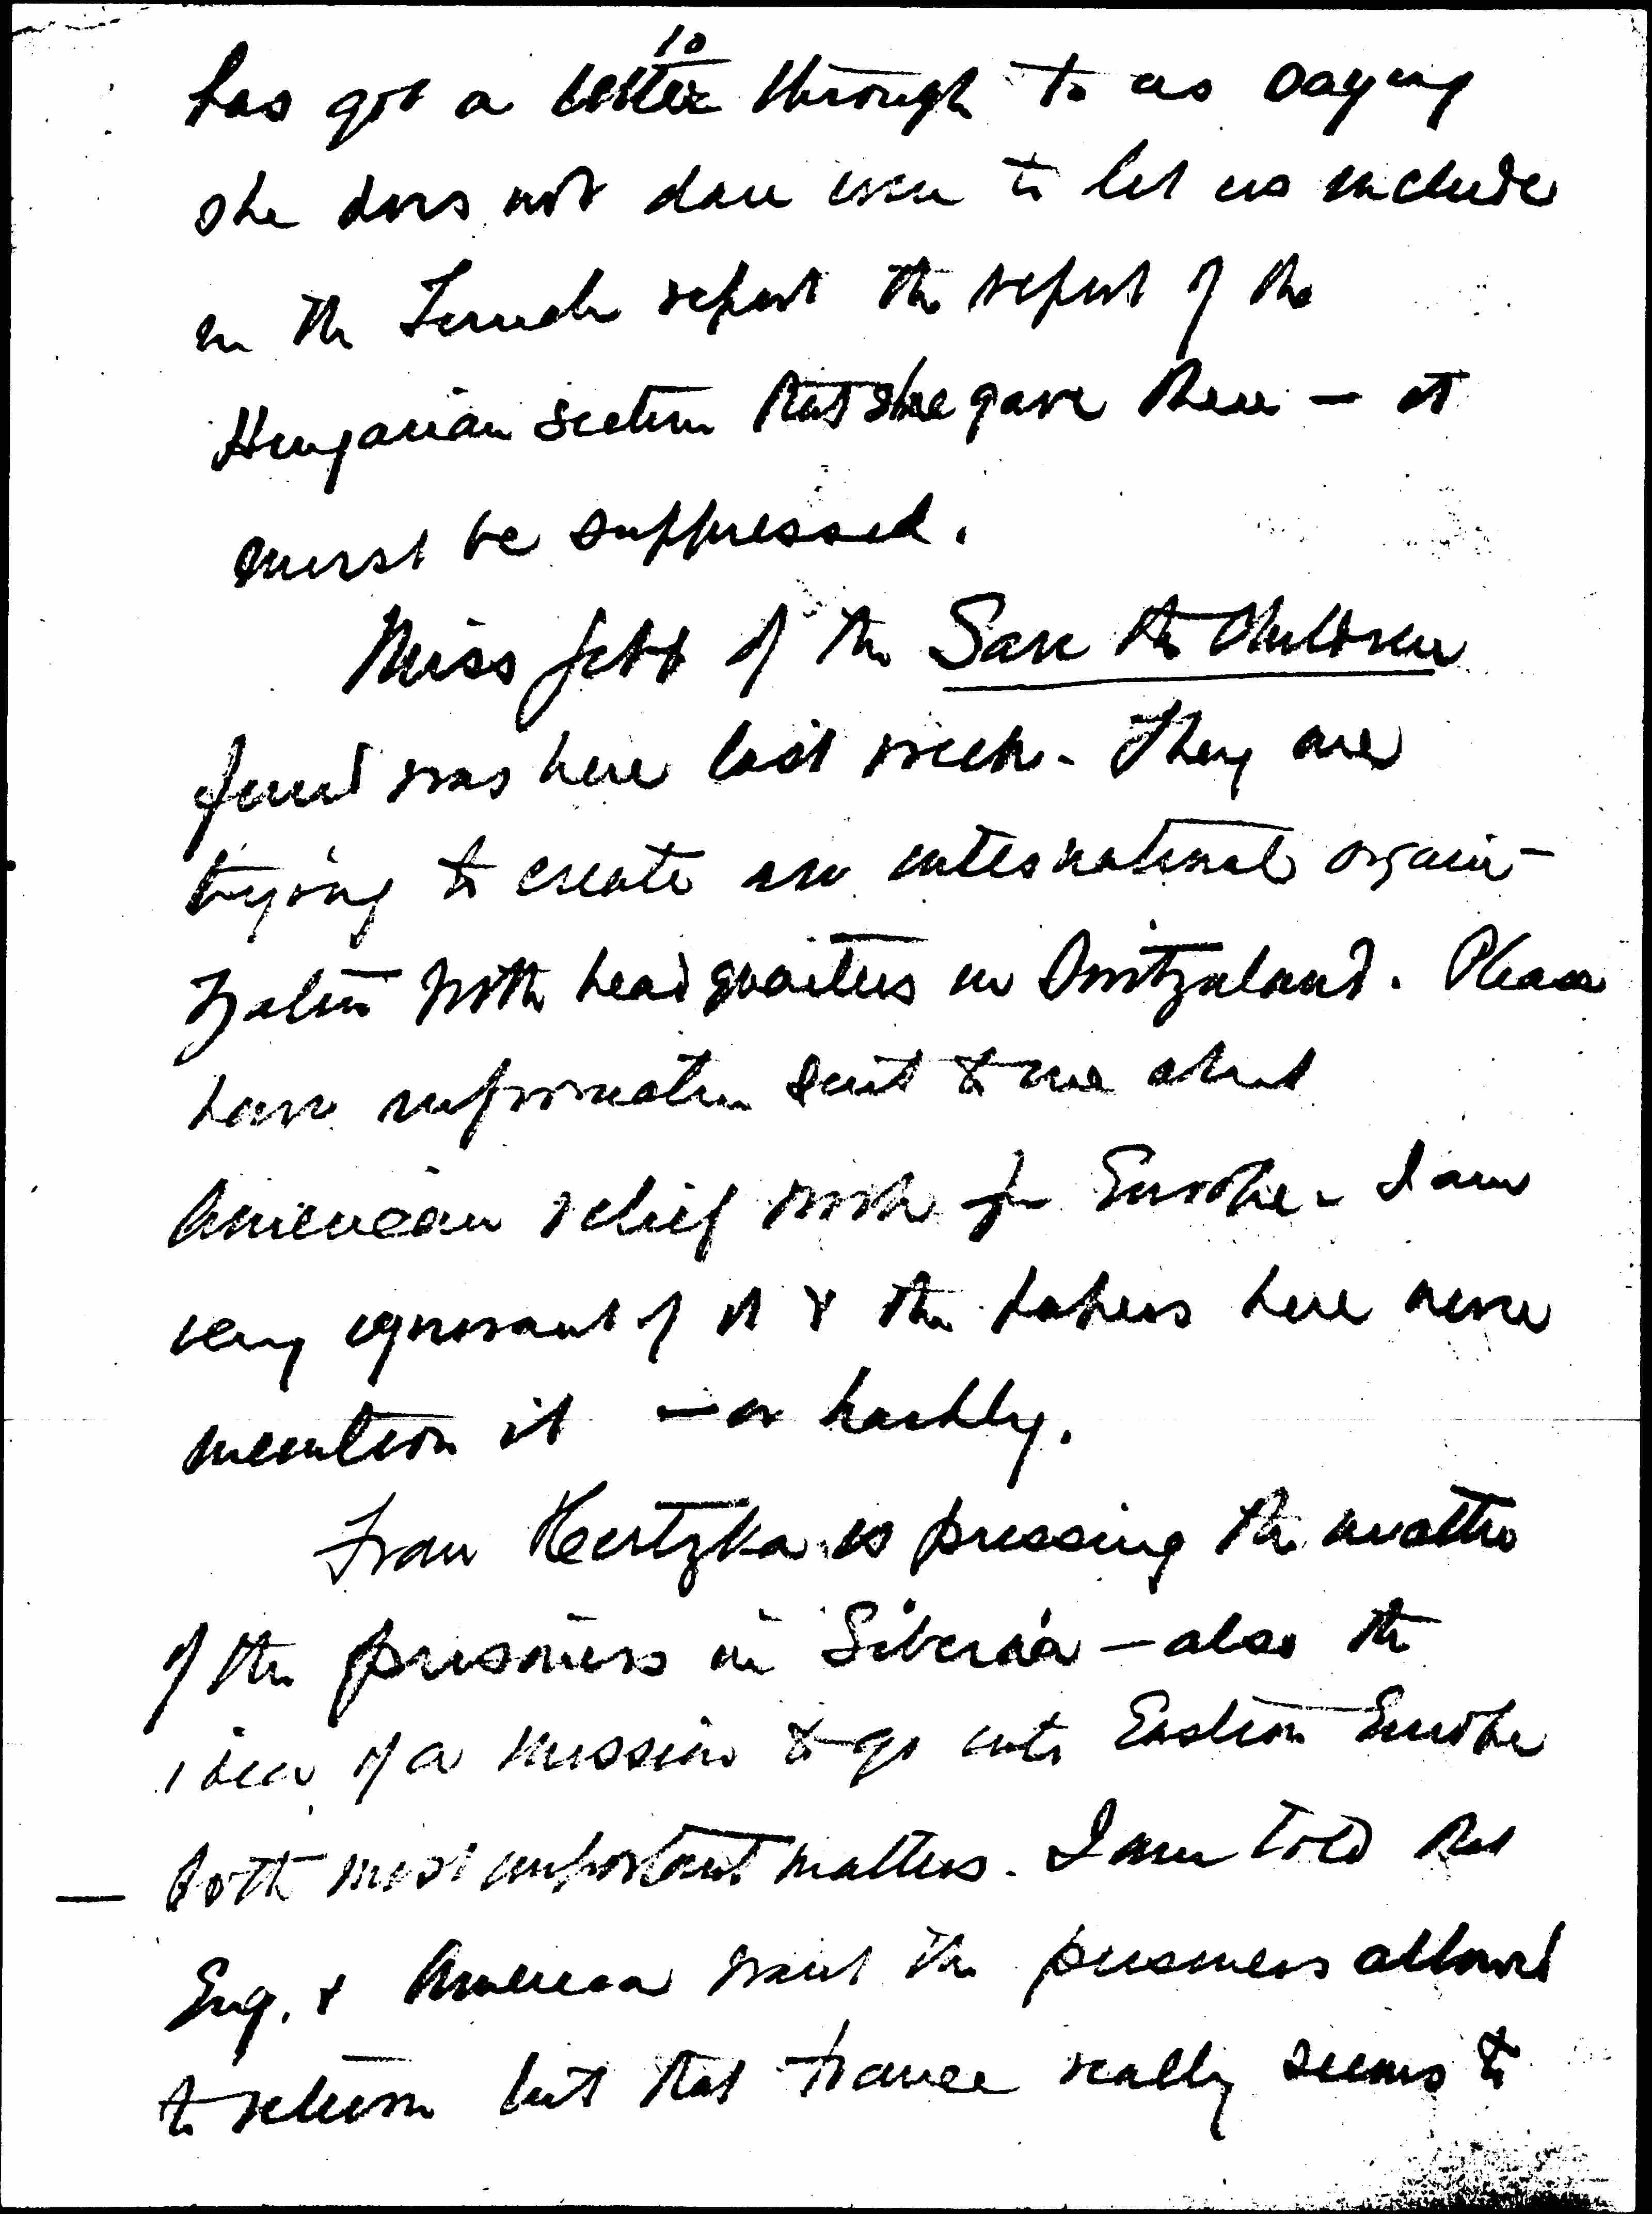 10
has got a letter through to us saying
she does not dare even to let us include
in the French report the report of the
Hungarian section that she gave there — it
must be suppressed.
Miss Jebb of the Save the Children
fund was here last week. They are
trying to create an international organi-
zation with headquarters in Switzerland. Please
have information sent to me about
American relief work for Europe. I am
very ignorant of it & the papers here never
mention it — or hardly.
Frau Hertzka is pressing the matter
of the prisoners in Siberia — also the
idea of a mission to go into Eastern Europe
— both most important matters. I am told that
Eng. & America want the prisoners allowed
to return but that France really seems to